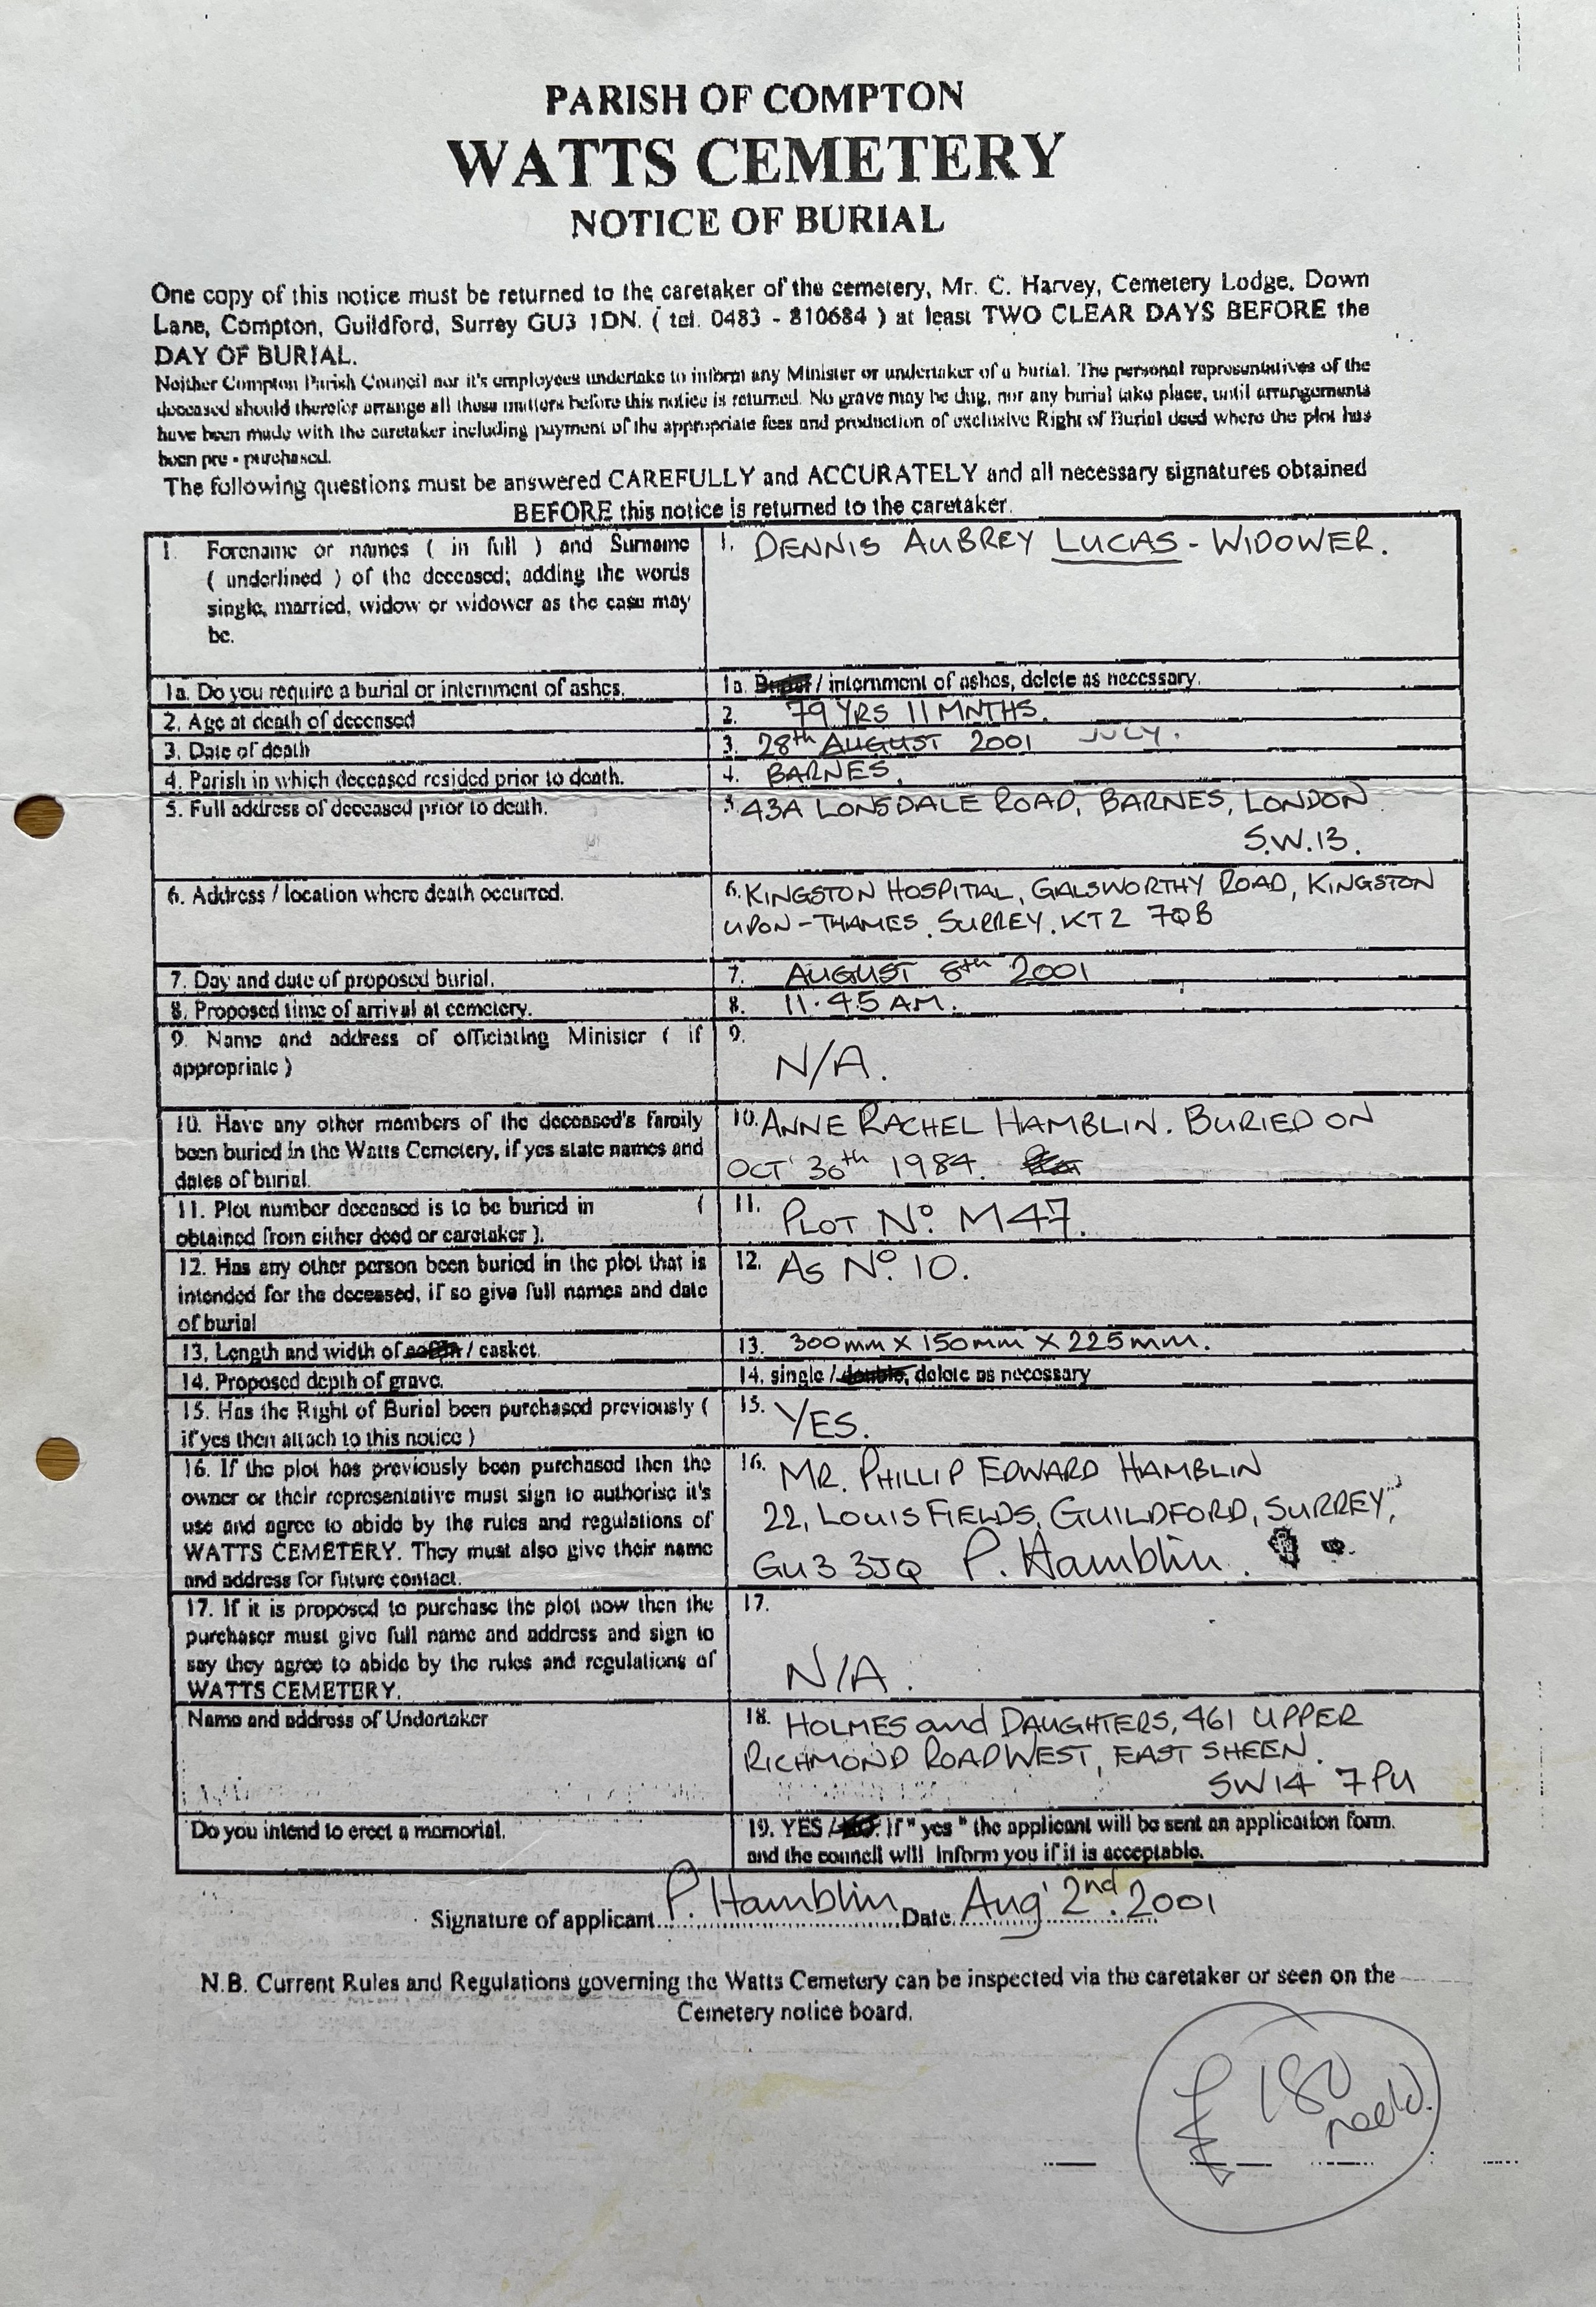 PARISH OF COMPTON
WATTS CEMETERY
NOTICE OF BURIAL
One copy of this notice must be returned to the caretaker of the cemetery, Mr. C. Harvey, Cemetery Lodge, Down
Lane, Compton, Guildford, Surrey GU3 1DN. ( tel. 0483 - 810684 ) at least TWO CLEAR DAYS BEFORE the
DAY OF BURIAL.
Neither Compton Parish Council nor it's employees undertake to inform any Minister or undertaker of a burial. The personal representatives of the
deceased should therefor arrange all these matters before this notice is returned. No grave may be dug, nor any burial take place, until arrangements
have been made with the caretaker including payment of the appropriate fees and production of exclusive Right of Burial deed where the plot has
been pre - purchased.
The following questions must be answered CAREFULLY and ACCURATELY and all necessary signatures obtained
BEFORE this notice is returned to the caretaker.
1. Forename or names ( in full ) and Surname
( underlined ) of the deceased; adding the words
single, married, widow or widower as the case may
be.
1. DENNIS AUBREY LUCAS - WIDOWER.
1a. Do you require a burial or internment of ashes.
1a. Burial / internment of ashes, delete as necessary.
2. Age at death of deceased
2. 79 YRS 11 MNTHS.
3. Date of death
3. 28th AUGUST 2001 JULY.
4. Parish in which deceased resided prior to death.
4. BARNES.
5. Full address of deceased prior to death.
5. 43A LONSDALE ROAD, BARNES, LONDON
S.W.13.
6. Address / location where death occurred.
6. KINGSTON HOSPITIAL, GALSWORTHY ROAD, KINGSTON
UPON-THAMES. SURREY. KT2 7QB
7. Day and date of proposed burial.
7. AUGUST 8th 2001
8. Proposed time of arrival at cemetery.
8. 11.45 AM.
9. Name and address of officiating Minister ( if
appropriate )
9.
N/A.
10. Have any other members of the deceased's family
been buried in the Watts Cemetery, if yes state names and
dates of burial.
10. ANNE RACHEL HAMBLIN. BURIED ON
OCT' 30th 1984.
11. Plot number deceased is to be buried in (
obtained from either deed or caretaker ).
11. PLOT No. M47.
12. Has any other person been buried in the plot that is
intended for the deceased, if so give full names and date
of burial
12. AS No. 10.
13. Length and width of coffin / casket.
13. 300mm X 150mm X 225mm.
14. Proposed depth of grave.
14. single / double, delete as necessary
15. Has the Right of Burial been purchased previously (
if yes then attach to this notice )
15. YES.
16. If the plot has previously been purchased then the
owner or their representative must sign to authorise it's
use and agree to abide by the rules and regulations of
WATTS CEMETERY. They must also give their name
and address for future contact.
16. MR. PHILLIP EDWARD HAMBLIN
22, LOUIS FIELDS, GUILDFORD, SURREY,
GU3 3JQ P. Hamblin.
17. If it is proposed to purchase the plot now then the
purchaser must give full name and address and sign to
say they agree to abide by the rules and regulations of
WATTS CEMETERY.
17.
N/A.
Name and address of Undertaker
18. HOLMES and DAUGHTERS, 461 UPPER
RICHMOND ROAD WEST, EAST SHEEN.
SW14 7PU
Do you intend to erect a memorial.
19. YES / NO. If " yes " the applicant will be sent an application form.
and the council will inform you if it is acceptable.
Signature of applicant P. Hamblin Date Aug' 2nd. 2001
N.B. Current Rules and Regulations governing the Watts Cemetery can be inspected via the caretaker or seen on the
Cemetery notice board.
£ 180